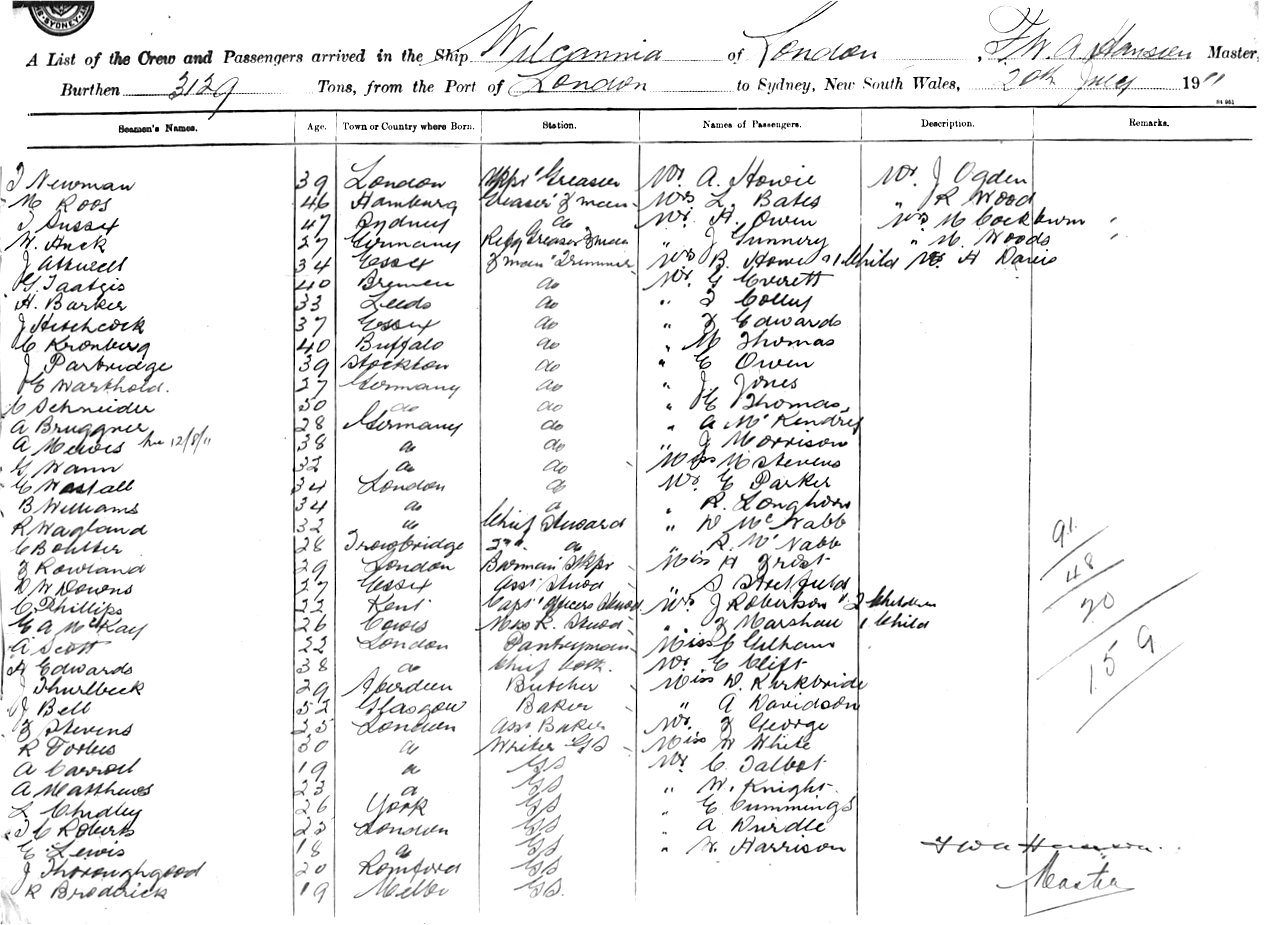 SYDNEY
A List of the Crew and Passengers arrived in the Ship Wilcannia of London, F W A Hansen Master,
Burthen 3129 Tons, from the Port of London to Sydney, New South Wales, 20th July 1911
Seamen's Names. Age. Town or Country where Born. Station. Names of Passengers. Description. Remarks.
T Newman 39 London Greaser Mr. A. Howie Mr. J Ogden
M Roos 46 Hamburg Greaser & man Mrs L. Bates " R Wood
T Sussex 47 Sydney do Mr. H. Owen Mrs M Cockburn
W. Huck 27 Germany Refg Greaser & man " J Gunnery " M. Woods
J Atkwell 34 Essex F'man & Trimmer Mrs B. Howie & 1 Child Mr H Davis
G Taatgis 40 Bremen do Mr. G Everett
H. Barker 33 Leeds do " T Colley
J Hitchcock 37 Essex do " F Edwards
C Kronberg 40 Buffalo do " M Thomas
J Partridge 39 Stockton do " E Owen
E Warthold. 27 Germany do " J Jones
C Schneider 30 do do " E Thomas
A Bruggner 28 Germany do " A McKendry
A Mewis 12/8/11 38 do do " J Morrison
G Wann 32 do do Miss M Stevens
E Wastall 34 London do Mr. E Parker
B Williams 34 do do " R. Longhorn
R Wagland 32 do Chief Steward " D McNabb
C Bohlter 28 Trowbridge 2nd do " R. McNabb
F Rowland 29 London Barman Stkpr Miss H Grist
D W Downs 27 Essex Asst Stewd " S Streetfield
C Phillips 22 Kent Capts Officers Stewd Mrs J Robertson & 2 Children
E A McKay 26 Cowes Mess R. Stewd " F Marshall 1 Child
A Scott 22 London Pantryman Miss C Gulham
H Edwards 38 do Chief Cook. Mr. E Clift
J Thurlbeck 29 Aberdeen Butcher Miss D. Kirkbride
J Bell 52 Glasgow Baker " A Davidson
F Stevens 25 London Asst Baker Mr. F George
R Forbes 30 do Writer GS Miss W White
A Carroll 19 do GS Mr. C. Talbot
A Matthews 23 do GS " W. Knight
L Chidley 26 York GS " E Cummings
T C Roberts 23 London GS " A Durdle
E Lewis 18 do GS " W. Harrison
J Thoroughgood 20 Romford GS
R Broderick 19 Melbn GS.
91
48
20
159
F W A Hansen
Master